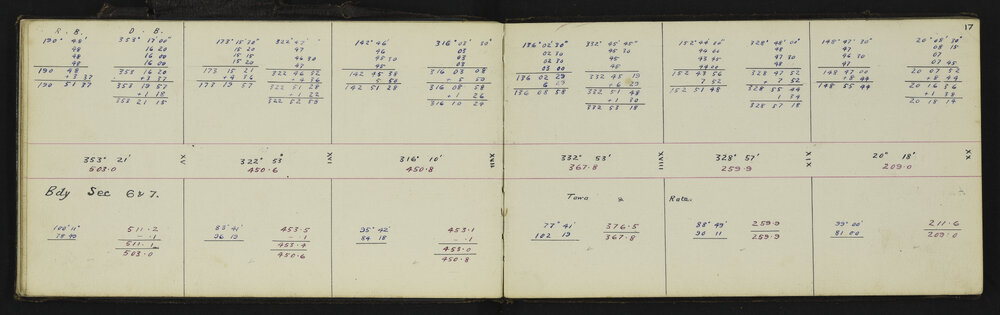 R. B. D. B.
190° 48' 353° 17' 00"
48 16 20
48 16 00
48 16 00
190 48 353 16 20
+3 37 +3 37
190 51 37 353 19 57
+1 18
353 21 15
173° 15' 30" 322° 47'
15 20 47
15 15 46 30
15 20 47
173 15 21 322 46 52
+4 36 +4 36
173 19 57 322 51 28
+1 22
322 52 50
142° 46' 316° 03' 30"
46 03
45 30 03
45 03
142 45 38 316 03 08
5 50 +5 50
142 51 28 316 08 58
+1 26
316 10 24
17
136° 02' 30" 332° 45' 45"
02 30 45 30
02 30 45
03 00 45
136 02 29 332 45 19
6 29 +6 29
136 08 58 332 51 48
+1 30
332 53 18
152° 44' 50" 328° 48' 00"
44 47 30
43 45 48
44 00 47 30
152 43 56 328 47 52
7 52 +7 52
152 51 48 328 55 44
1 34
328 57 18
148° 47' 30" 20° 08' 30"
47 08 15
46 30 07
47 07 45
148 47 00 20 07 52
+8 44 +8 44
148 55 44 20 16 36
+1 38
20 18 14
353° 21' XV 322° 53' XVI 316° 10' XVII 332° 53' XVIII 328° 57' XIX 20° 18' XX
503.0 450.6 450.8 367.8 259.9 209.0
Bdy Sec 6 & 7. Town & Rata.
100° 11" 511.2
78 49 - .1
511.1
503.0
83° 41' 453.5
96 19 - .1
453.4
450.6
95° 42' 453.1
84 18 - .1
453.0
450.8
77° 41' 376.5
102 19 367.8
88° 49' 259.9
90 11 259.9
99° 00' 211.6
81 00 209.0